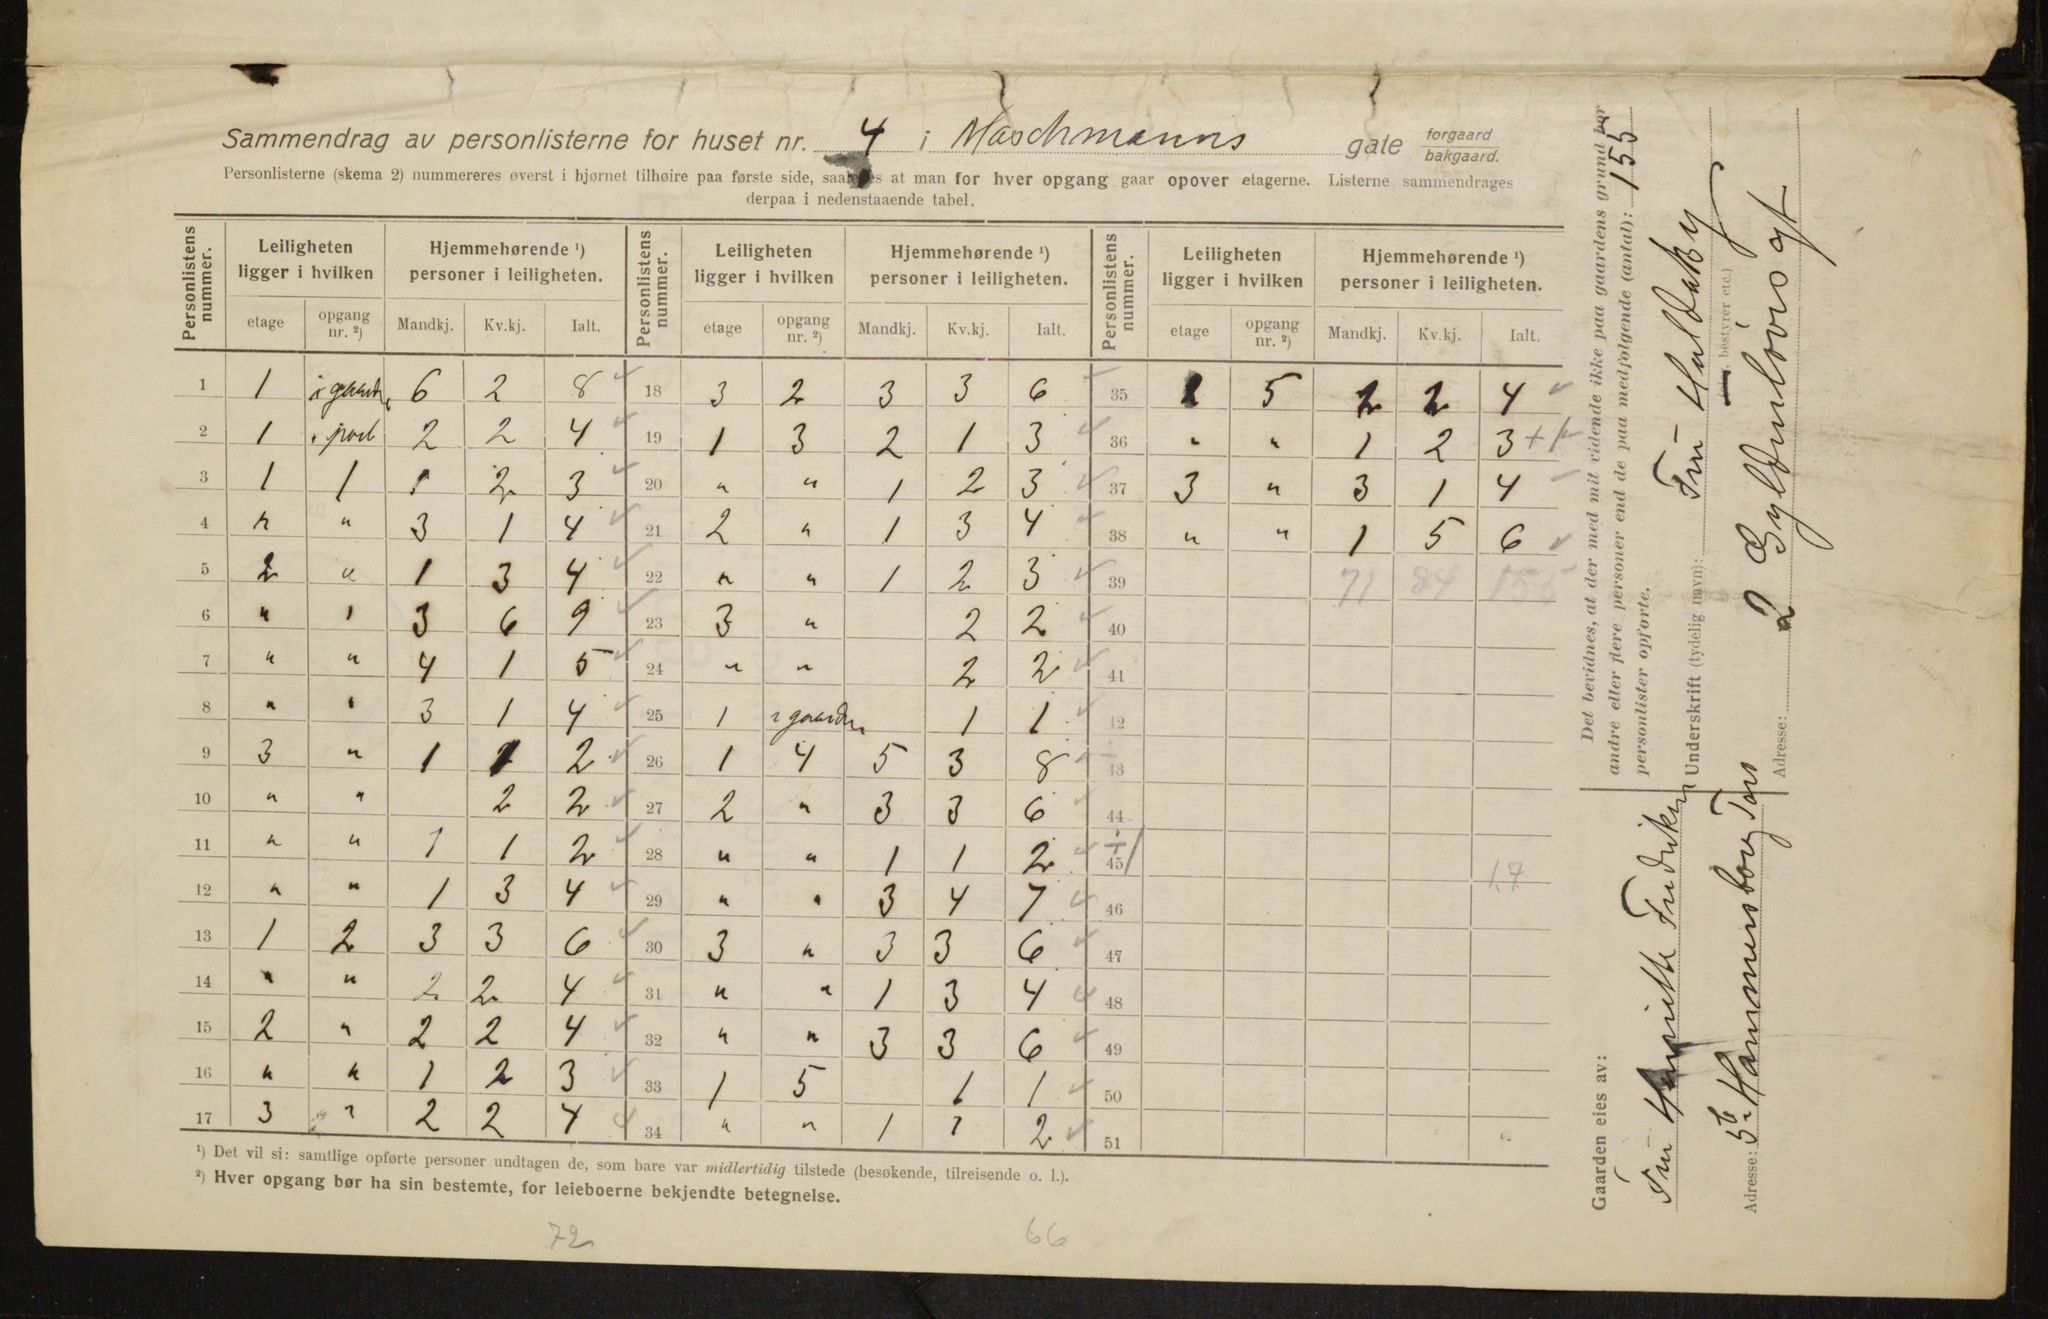 Sammendrag av personlisterne for huset nr. 4 i Maschmanns gate forgaard bakgaard.
Personlisterne (skema 2) nummereres øverst i hjørnet tilhøire paa første side, saaledes at man for hver opgang gaar opover etagerne. Listerne sammendrages
derpaa i nedenstaaende tabel.
Personlistens nummer. Leiligheten ligger i hvilken Hjemmehørende ¹) personer i leiligheten. Personlistens nummer. Leiligheten ligger i hvilken Hjemmehørende ¹) personer i leiligheten. Personlistens nummer. Leiligheten ligger i hvilken Hjemmehørende ¹) personer i leiligheten.
etage opgang nr. ²) Mandkj. Kv.kj. Ialt. etage opgang nr. ²) Mandkj. Kv.kj. Ialt. etage opgang nr. ²) Mandkj. Kv.kj. Ialt.
1 1 i gaarden 6 2 8 18 3 2 3 3 6 35 2 5 2 2 4
2 1 i port 2 2 4 19 1 3 2 1 3 36 " " 1 2 3 +
3 1 1 1 2 3 20 " " 1 2 3 37 3 " 3 1 4
4 " " 3 1 4 21 2 " 1 3 4 38 " " 1 5 6
5 2 " 1 3 4 22 " " 1 2 3 39 71 84 155
6 " " 3 6 9 23 3 " 2 2 40
7 " " 4 1 5 24 " " 2 2 41
8 " " 3 1 4 25 1 i gaarden 1 1 42
9 3 " 1 1 2 26 1 4 5 3 8 43
10 " " 2 2 27 2 " 3 3 6 44
11 " " 1 1 2 28 " " 1 1 2 45 17
12 " " 1 3 4 29 " " 3 4 7 46
13 1 2 3 3 6 30 3 " 3 3 6 47
14 " " 2 2 4 31 " " 1 3 4 48
15 2 " 2 2 4 32 " " 3 3 6 49
16 " " 1 2 3 33 1 5 1 1 50
17 3 " 2 2 4 34 " " 1 1 2 51
¹) Det vil si: samtlige opførte personer undtagen de, som bare var midlertidig tilstede (besøkende, tilreisende o. l.).
²) Hver opgang bør ha sin bestemte, for leieboerne bekjendte betegnelse.
72 66
Det bevidnes, at der med mit vidende ikke paa gaardens grund bor
andre eller flere personer end de paa medfølgende (antal): 155
personlister opførte.
Underskrift (tydelig navn):
bestyrer etc.)
Adresse: 2 Gyldenløvs gt
Gaarden eies av:
Adresse: 5b Hammersborg Torv